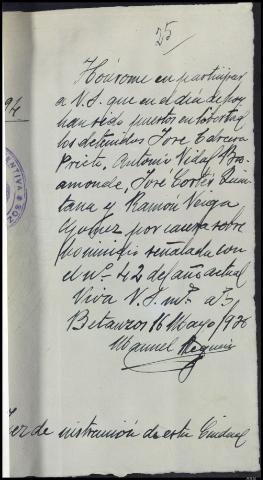 25
Hónrome en participar
a V.S. que en el día de hoy
han sido puestos en libertad
los detenidos José Cabrera
Prieto, Antonio Vidal
amonde, José Cortés Quin
tana y Ramón Veiga
por causa sobre
homicidio señalada con
el nº 42 del año actual
Viva V.S. mˢ. aˢ
Betanzos 16 Mayo 1936
Manuel
de instrucción de esta Ciudad